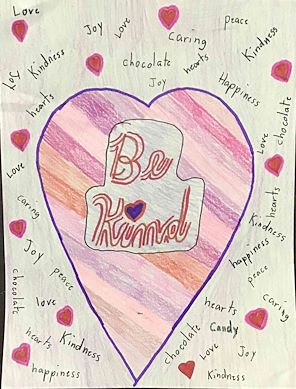 Love
Joy
Love
Caring
peace
Kindness
Joy
Kindness
chocolate
hearts
Joy
Happiness
chocolate
hearts
Love
Love
Be
Kind
caring
Joy
peace
hearts
Kindness
happiness
peace
chocolate
love
hearts
Kindness
happiness
hearts
caring
Candy
chocolate
Love
Joy
Kindness